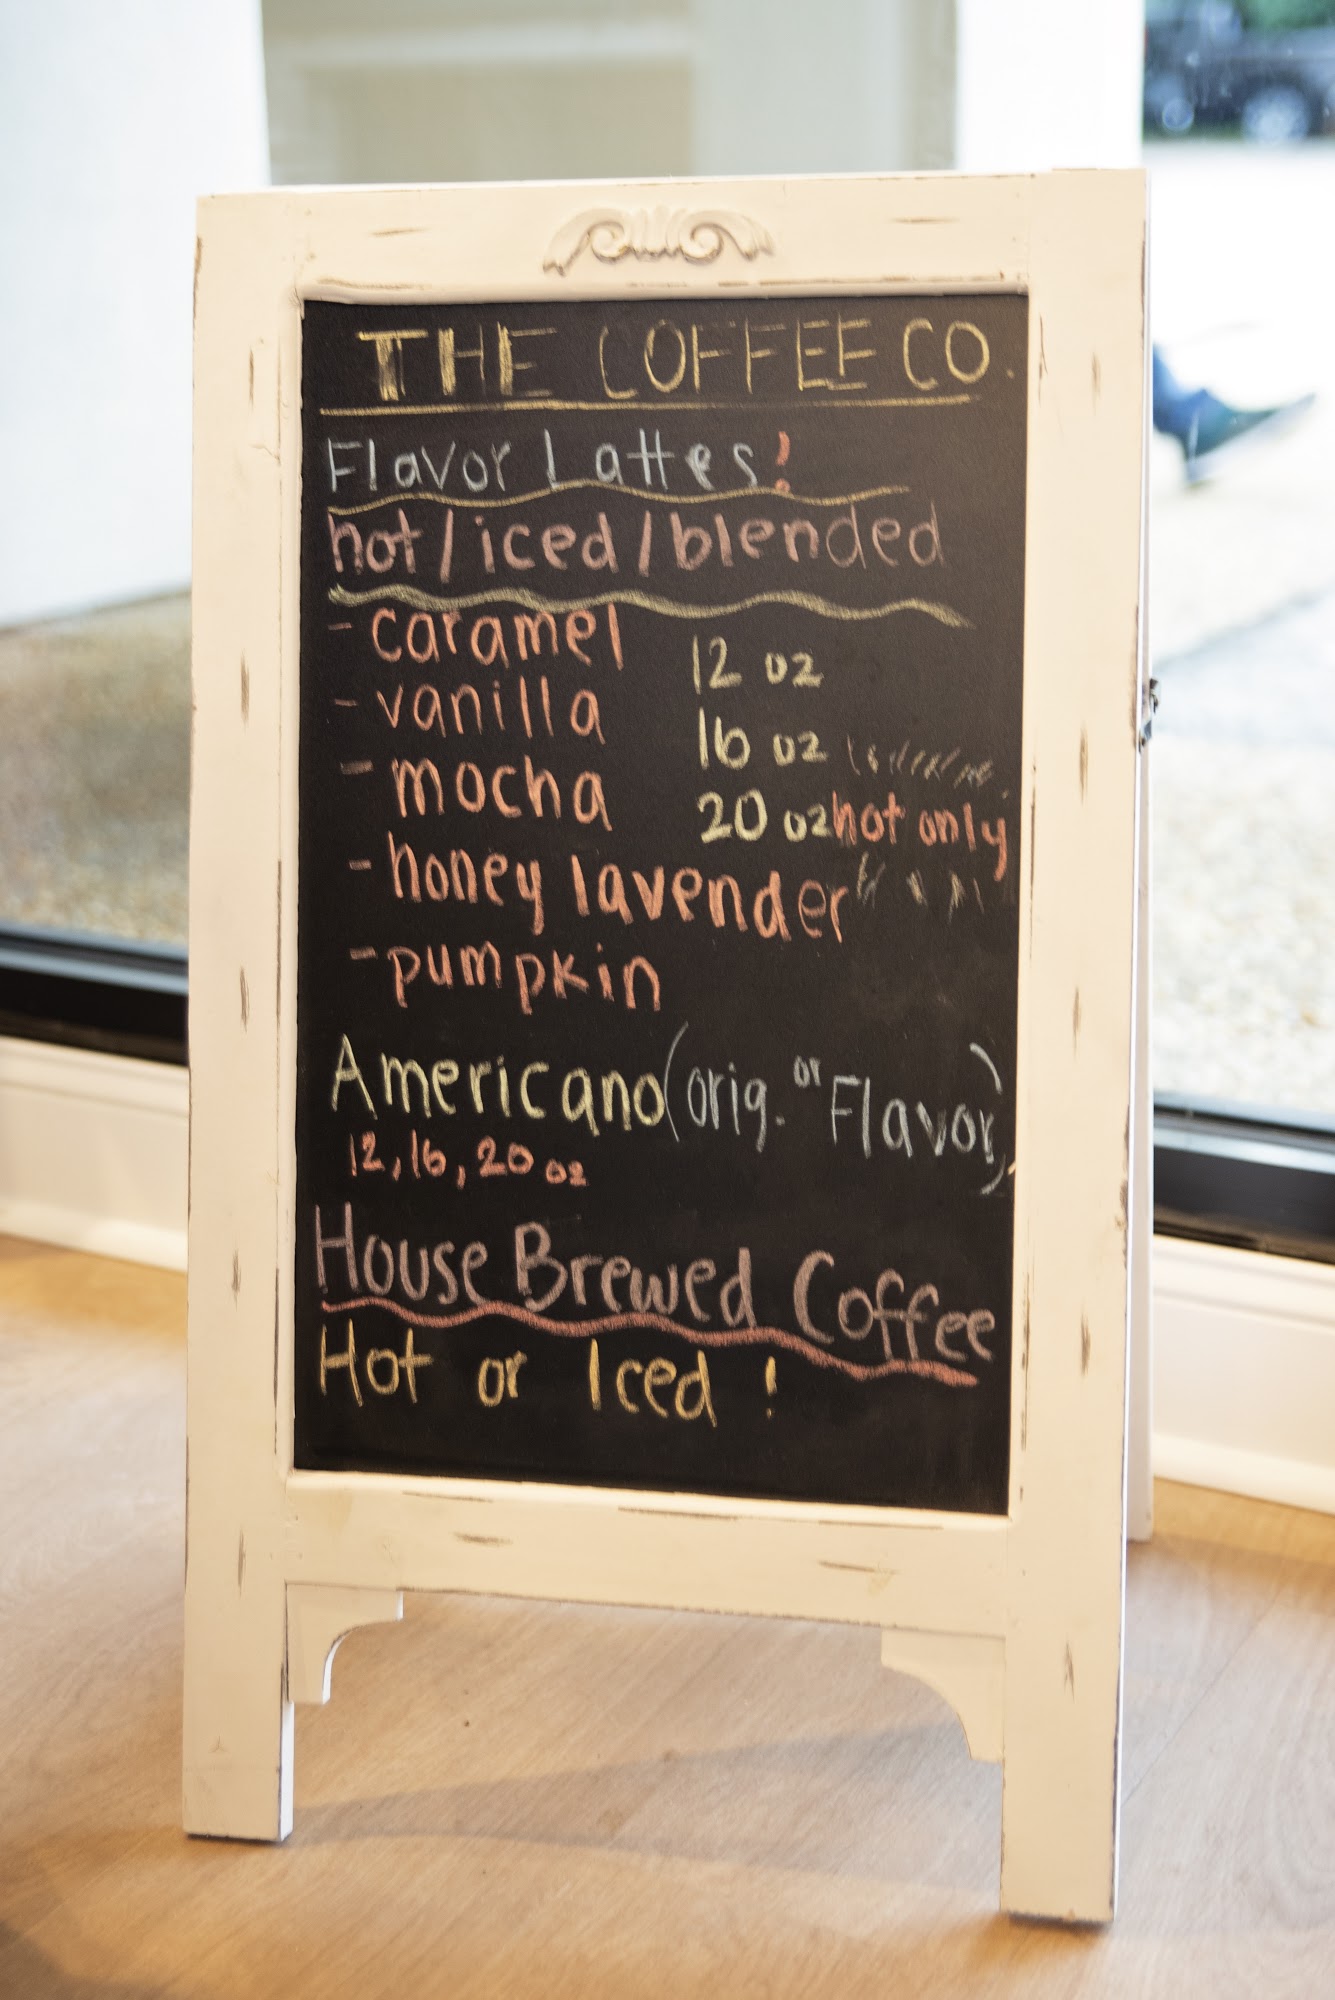 THE COFFEE CO.
Flavor Lattes!
hot/iced/blended
- caramel
- vanilla
- mocha
- honey lavender
- pumpkin
12 oz
16 oz
20 oz hot only
Americano (orig. or Flavor)
12, 16, 20 oz
House Brewed Coffee
Hot or Iced !